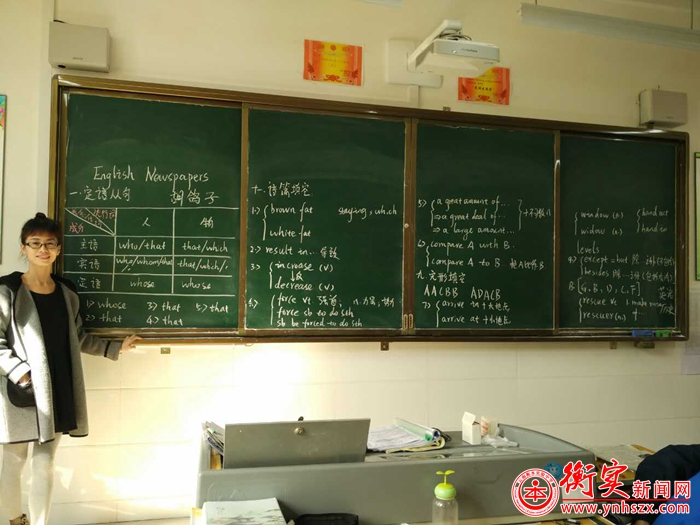 English Newspapers
一.定语从句 胡鸽子
成分
人 物
主语 who/that that/which
宾语 who/whom/that that/which/
定语 whose whose
1> whose 3> that 5> that
2> that 4> that
十.语篇填空
1> brown fat staying, which
white fat
2> result in... 导致
3> increase (v)
decrease (v)
force vt
force sb to do sth
sb be forced to do sth
5> a great amount of...
⇒ a great deal of...
⇒ a large amount...
+不可数n
6> compare A with B.
compare A to B
九.完形填空
AACBB ADACB
7> arrive in +大地点
arrive at +小地点
window (n) hand out
widow (n) hand in
levels
except = but 除
besides 除
B G, B, D, C, F
rescue vt
rescuer (n)
衡实新闻网
www.ynhszx.com